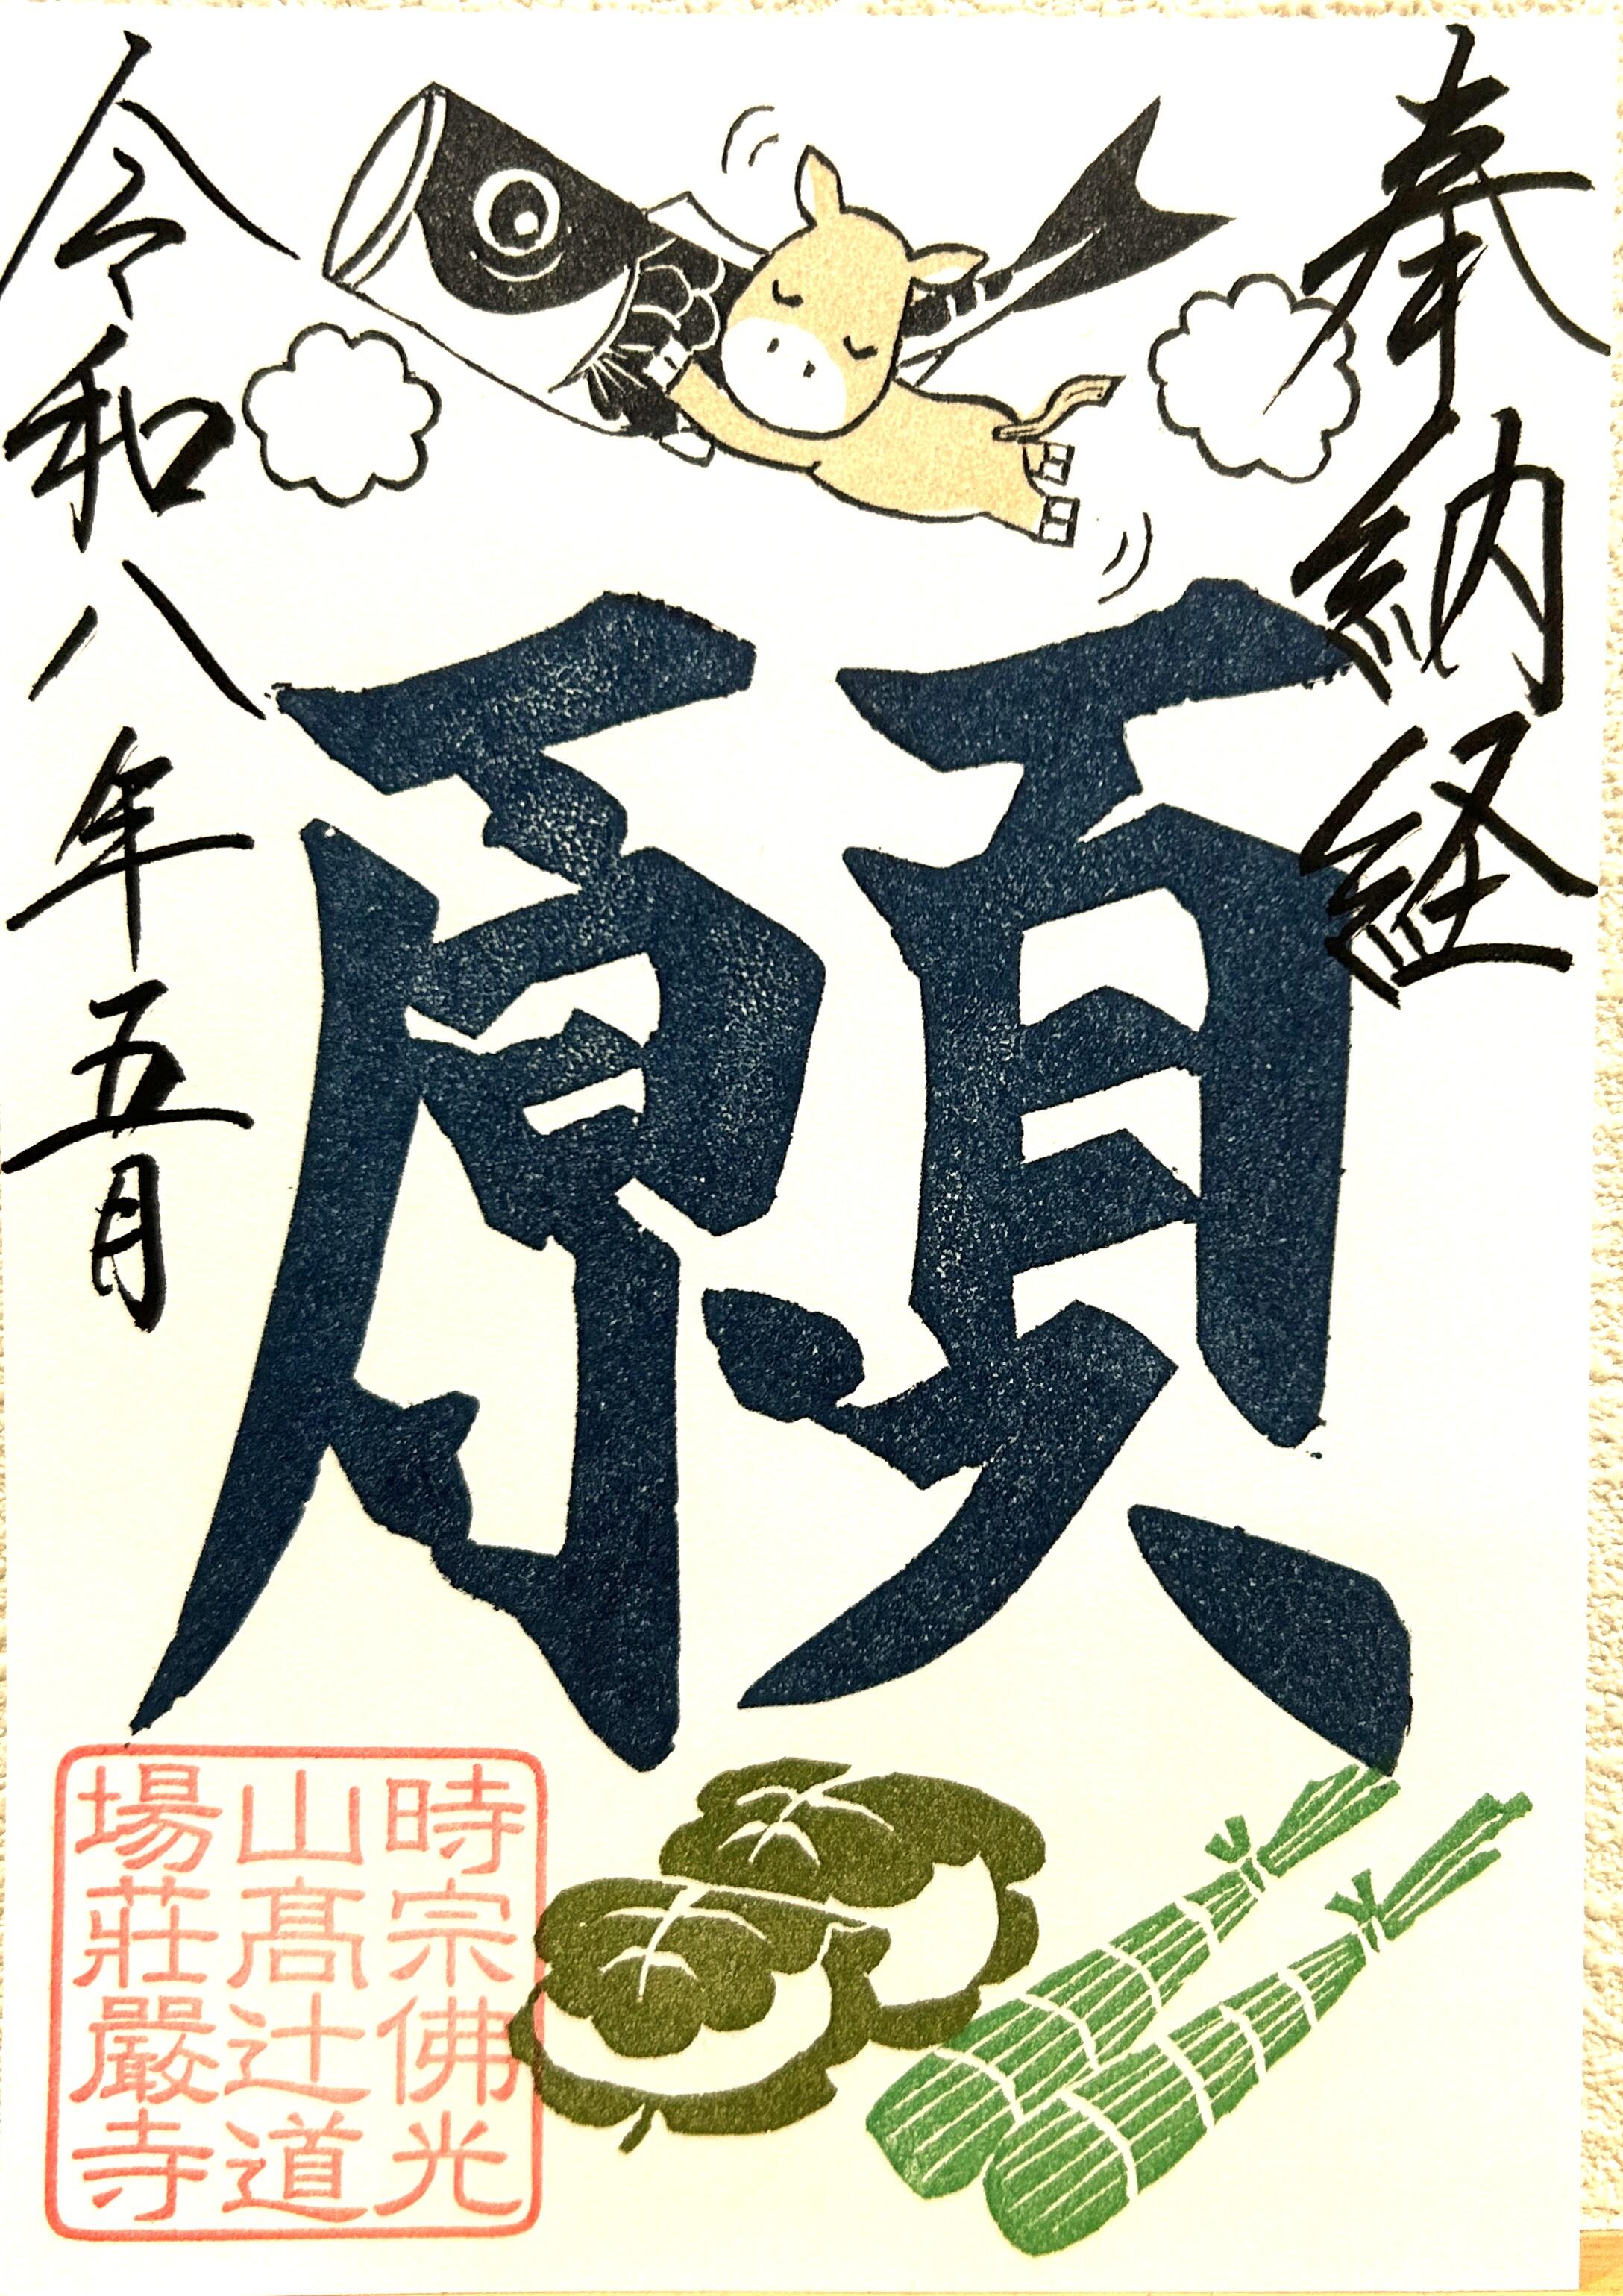 奉納経
願
令和八年五月
時宗佛光
山髙辻道
場莊嚴寺